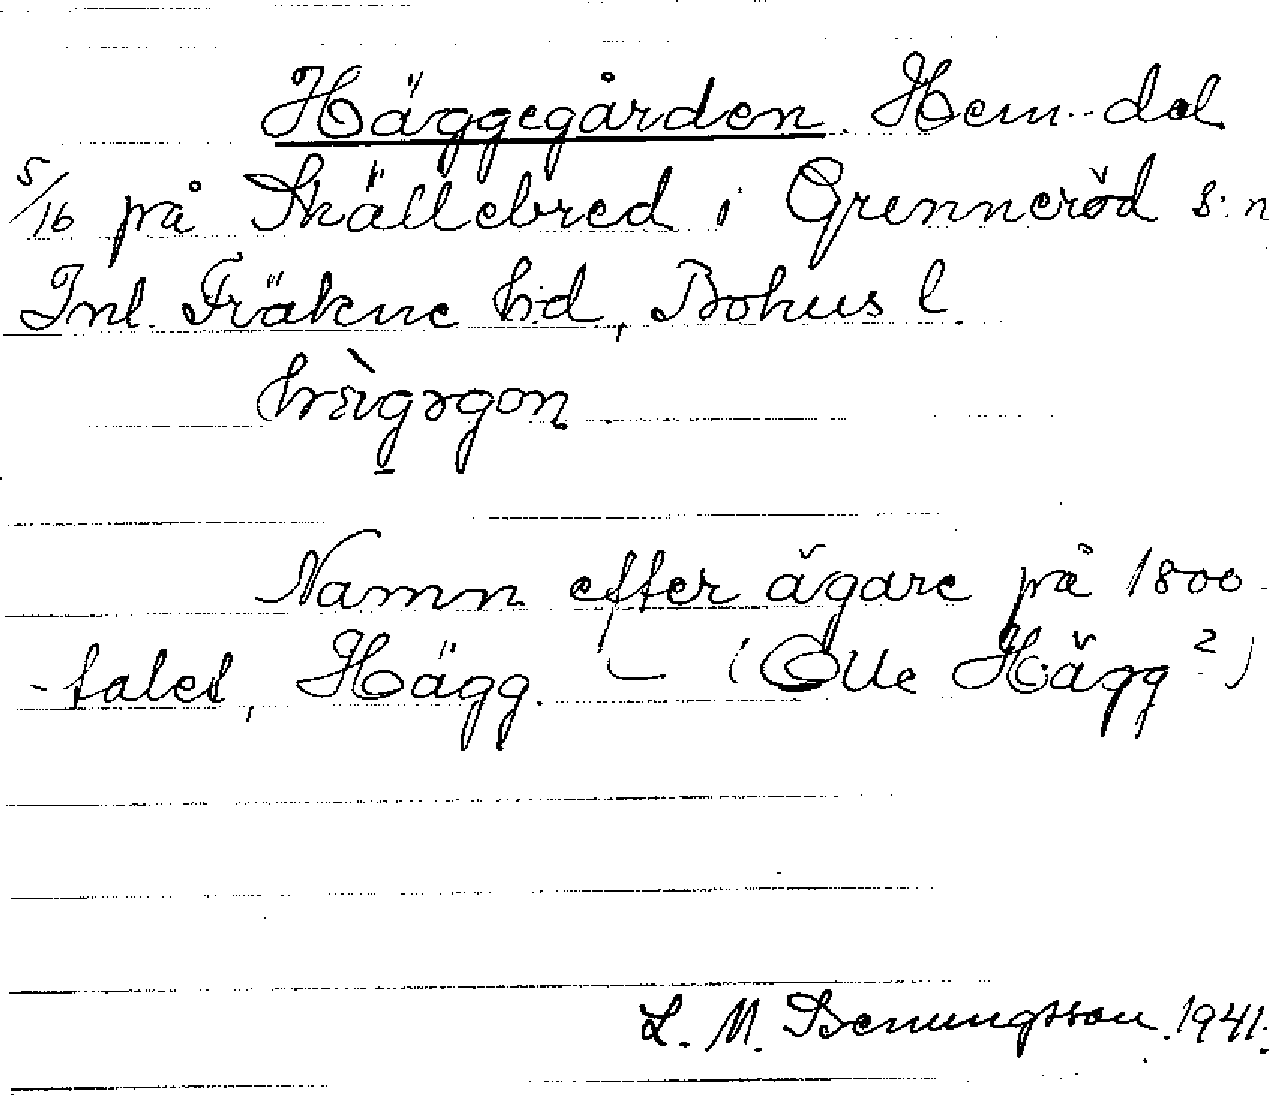 Häggegården. Hem. del
5/16 på Skällebred i Grenneröd s:n
Inl. Fräkne hd, Bohus l.
Namn efter ägare på 1800
-talet, Hägg. — (Olle Hägg?)
L. M. Bennungsson. 1941.